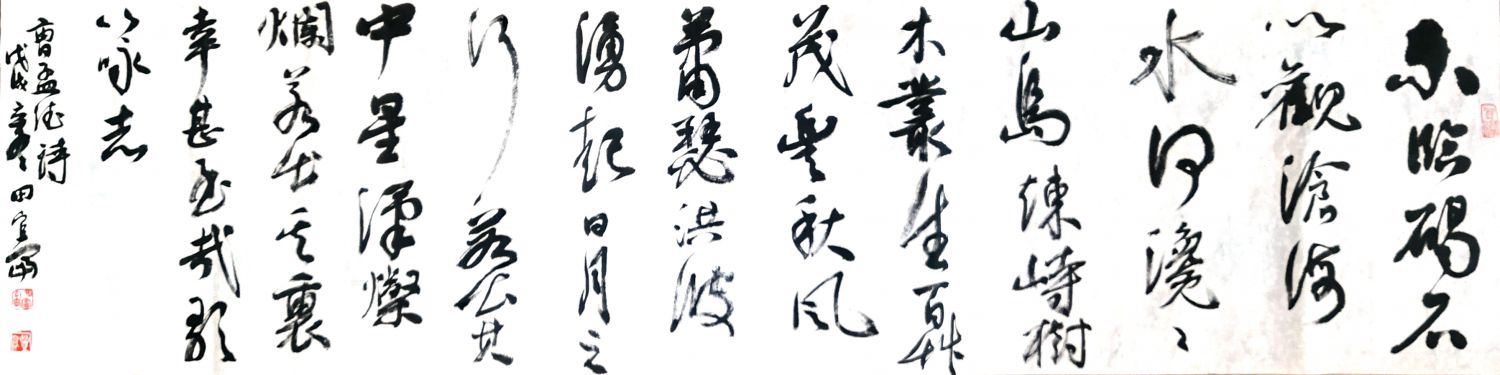 东临碣石
以觀滄海
水何澹々
山島竦峙樹
木叢生百草
茂豐秋风
蕭瑟洪波
湧起日月之
行若出其
中星漢燦
爛若出其裏
幸甚至哉歌
以咏志
曹孟德詩
戊戌 田